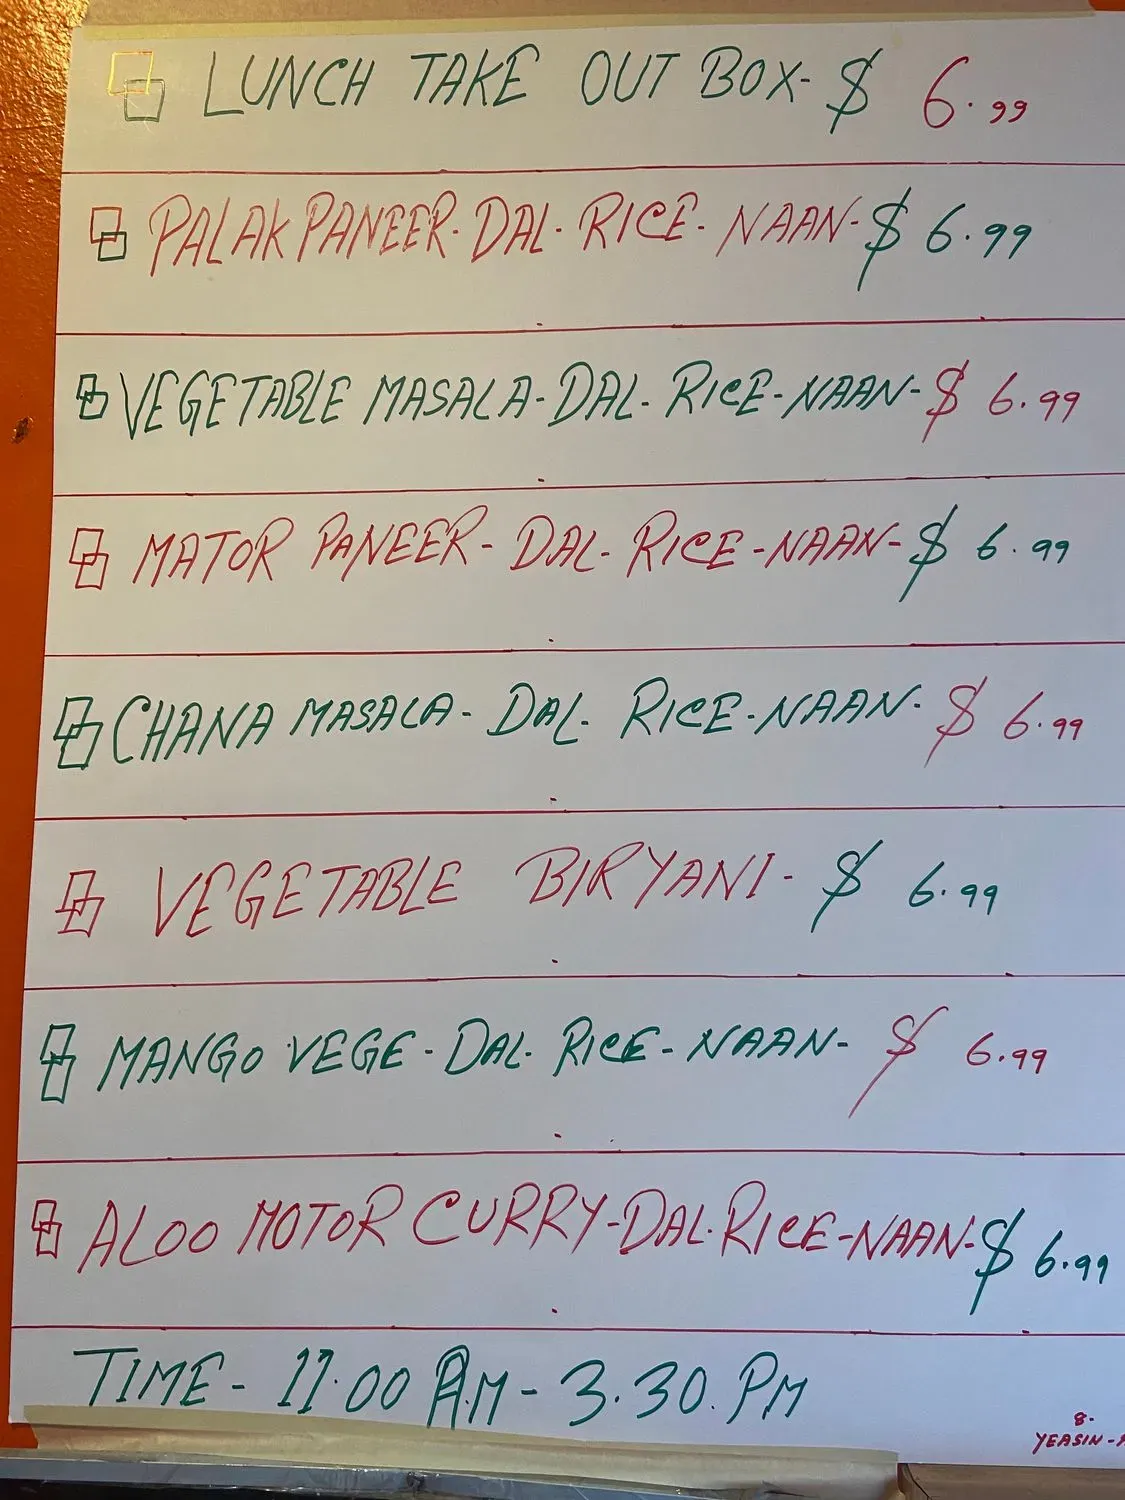 LUNCH TAKE OUT BOX- $ 6.99
PALAK PANEER- DAL- RICE- NAAN- $ 6.99
VEGETABLE MASALA- DAL- RICE- NAAN- $ 6.99
MATOR PANEER- DAL- RICE- NAAN- $ 6.99
CHANA MASALA- DAL- RICE- NAAN- $ 6.99
VEGETABLE BIRYANI- $ 6.99
MANGO VEGE- DAL- RICE- NAAN- $ 6.99
ALOO MOTOR CURRY- DAL- RICE- NAAN- $ 6.99
TIME- 11.00 A.M- 3.30. PM
8.
YEASIN-